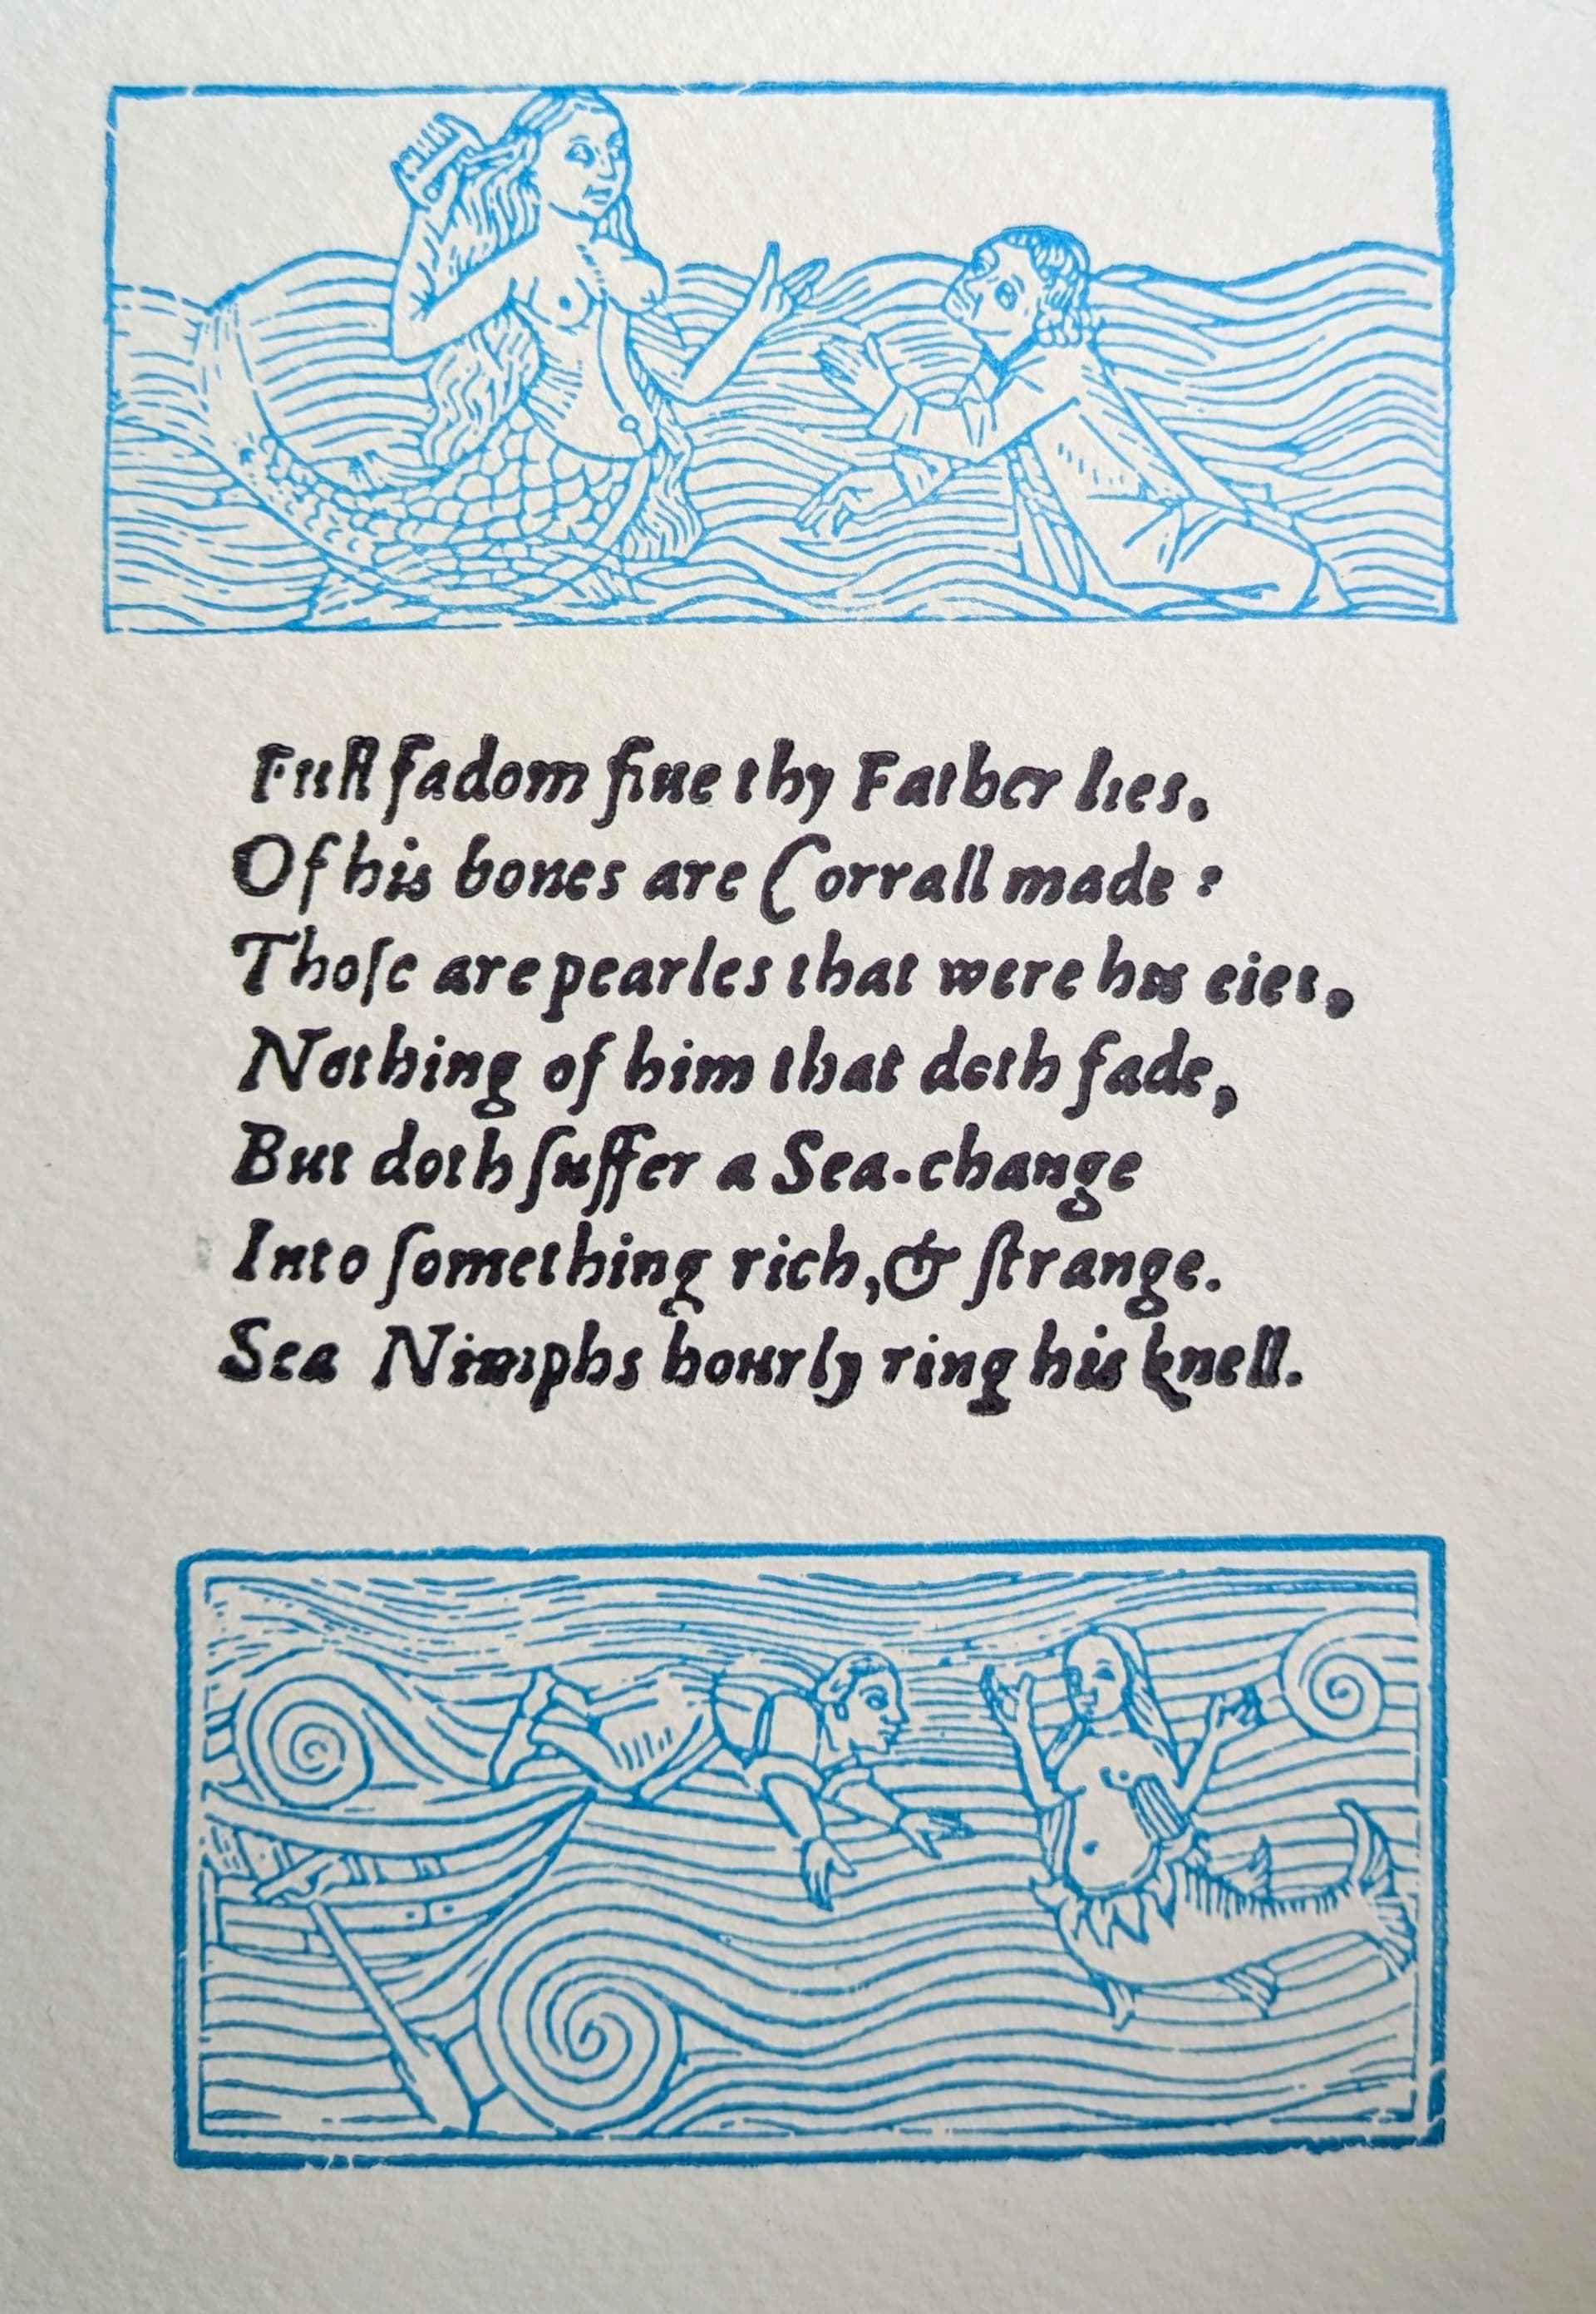 Full fadom fiue thy Father lies,
Of his bones are Corrall made:
Thoſe are pearles that were his eies,
Nothing of him that doth fade,
But doth ſuffer a Sea-change
Into ſomething rich, & ſtrange.
Sea Nimphs hourly ring his knell.